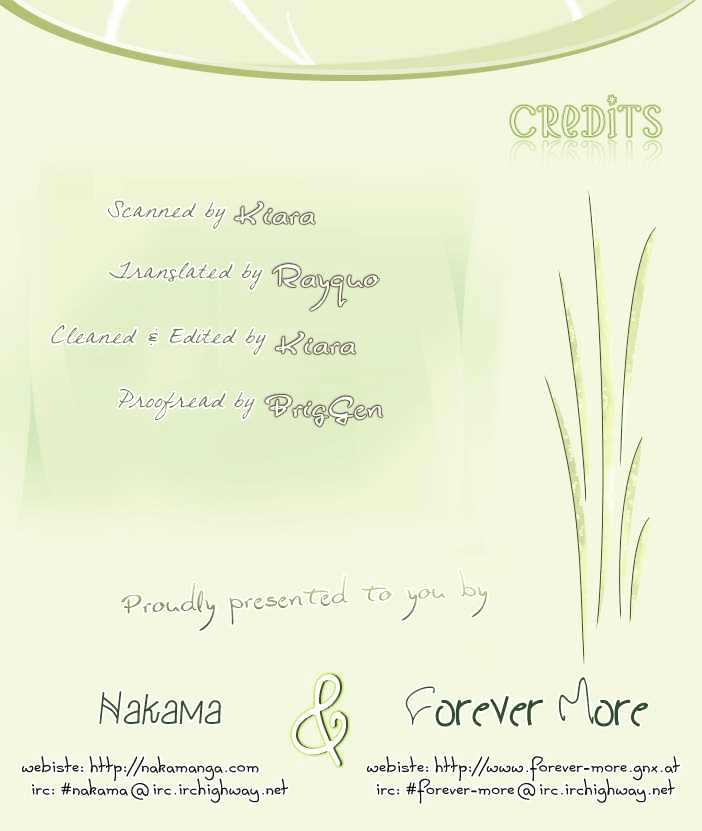 CReDiTS
Scanned by Kiara
Translated by Rayquo
Cleaned & Edited by Kiara
Proofread by BrigGen
Proudly presented to you by
Nakama & Forever More
webiste: http://nakamanga.com
irc: #nakama@irc.irchighway.net
webiste: http://www.forever-more.gnx.at
irc: #forever-more@irc.irchighway.net